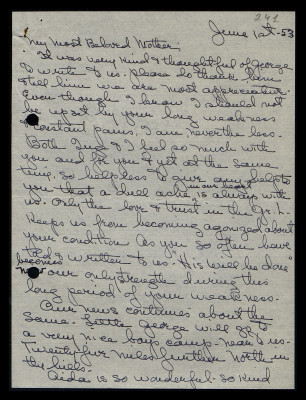 241
June 1st - 53
My Most Beloved Mother,
It was very kind & thoughtful of George
to write to us. Please do thank him
& tell him we are most appreciative.
Even though I know I should not
be upset by your long weakness
& constant pains, I am, nevertheless.
Both and I feel so much with
you and for you & yet at the same
time, so helpless to give any help to
you that a dull ache in our heart is always with
us. Only the love & trust in the
keeps us from becoming agonized about
your condition. As you so often have
told & written to us. "His Will be done"
becomes
now our only strength during this
long period of your weakness.
Our news continues about the
same. Little George will go to
a very nice boys camp - near to us -
Twenty five miles further North in
the hills.
Aida is so wonderful - so kind